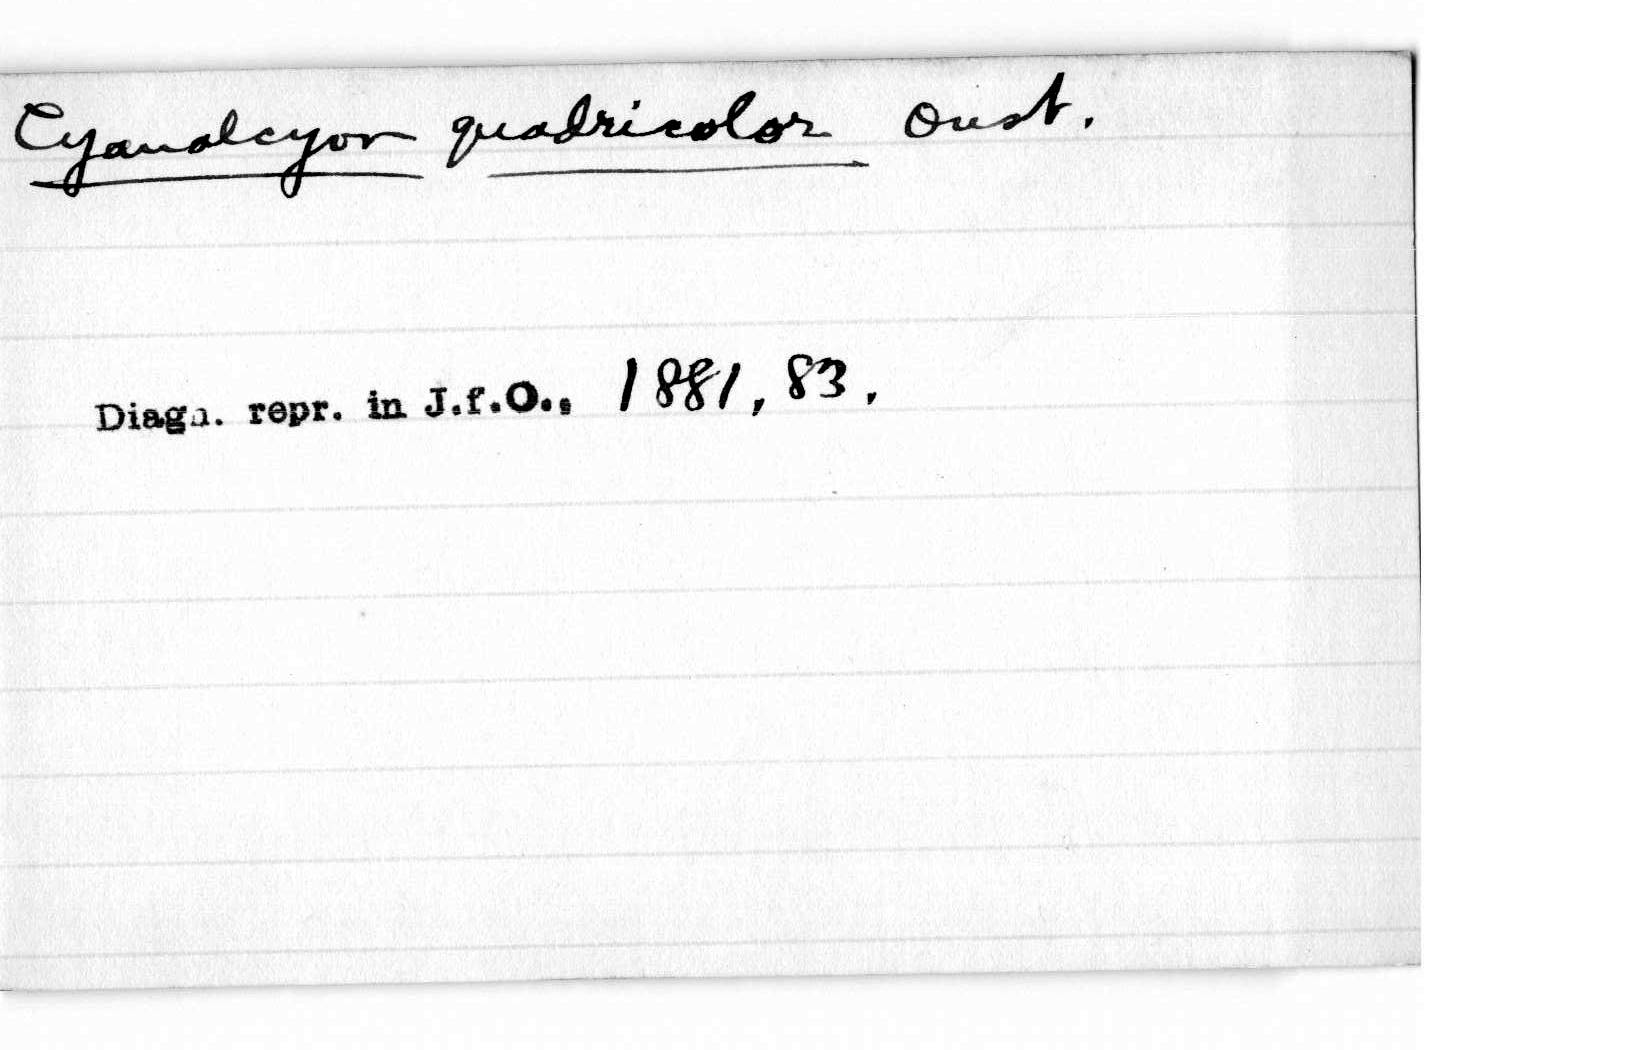 Cyanalcyon quadricolor Oust.
Diagn. repr. in J.f.O., 1881, 83.